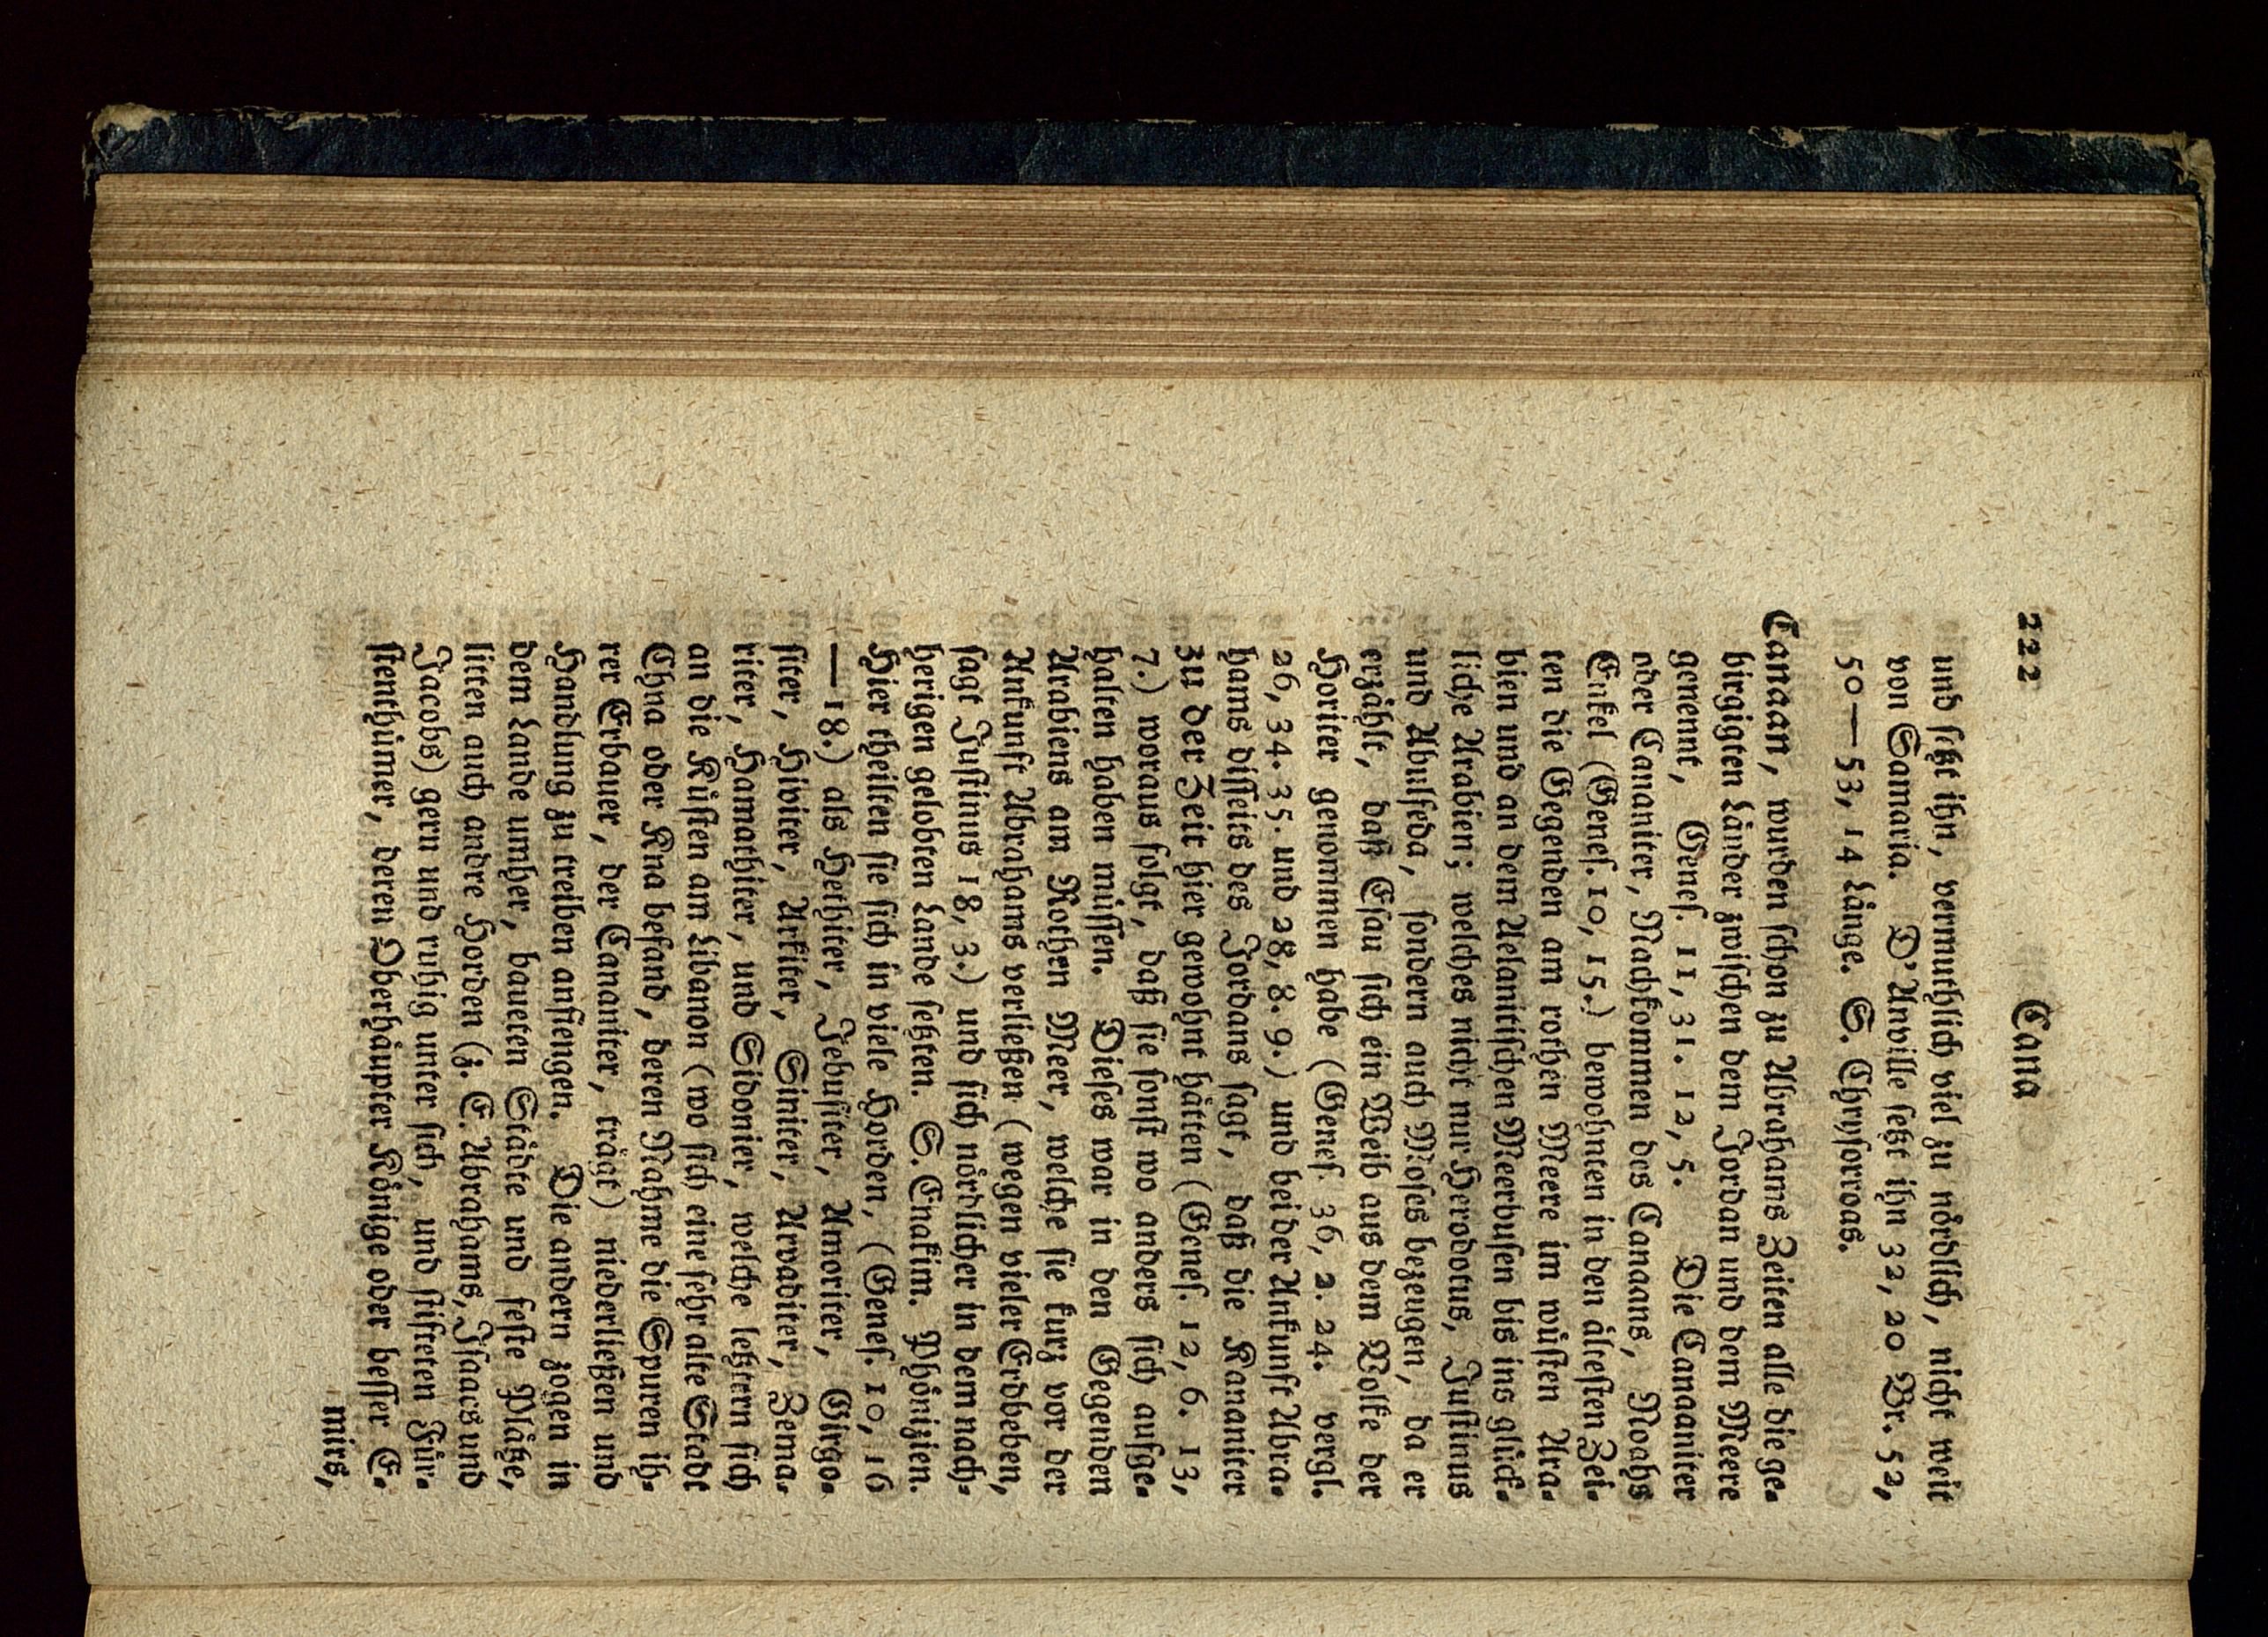 222 Cana
und ſetzt ihn, vermuthlich viel zu nördlich, nicht weit
von Samaria. D'Anville ſetzt ihn 32, 20 Br. 52,
50—53, 14 Länge. S. Chryſorroas.
Canaan, wurden ſchon zu Abrahams Zeiten alle die ge-
birgigten Länder zwiſchen dem Jordan und dem Meere
genennt, Geneſ. 11, 31. 12, 5. Die Canaaniter
oder Cananiter, Nachkommen des Canaans, Noahs
Enkel (Geneſ. 10, 15.) bewohnten in den älteſten Zei-
ten die Gegenden am rothen Meere im wüſten Ara-
bien und an dem Aelanitiſchen Meerbuſen bis ins glück-
liche Arabien; welches nicht nur Herodotus, Juſtinus
und Abulfeda, ſondern auch Moſes bezeugen, da er
erzählt, daß Eſau ſich ein Weib aus dem Volke der
Horiter genommen habe (Geneſ. 36, 2. 24. vergl.
26, 34. 35. und 28, 8. 9.) und bei der Ankunft Abra-
hams diſſeits des Jordans ſagt, daß die Kananiter
zu der Zeit hier gewohnt hätten (Geneſ. 12, 6. 13,
7.) woraus folgt, daß ſie ſonſt wo anders ſich aufge-
halten haben müſſen. Dieſes war in den Gegenden
Arabiens am Rothen Meer, welche ſie kurz vor der
Ankunft Abrahams verließen (wegen vieler Erdbeben,
ſagt Juſtinus 18, 3.) und ſich nördlicher in dem nach-
herigen gelobten Lande ſetzten. S. Enakim. Phönizien.
Hier theilten ſie ſich in viele Horden, (Geneſ. 10, 16
—18.) als Hethiter, Jebuſiter, Amoriter, Girgo-
ſiter, Hiviter, Arkiter, Siniter, Arvaditer, Zema-
riter, Hamathiter, und Sidonier, welche letztern ſich
an die Küſten am Libanon (wo ſich eine ſehr alte Stadt
Chna oder Kna befand, deren Nahme die Spuren ih-
rer Erbauer, der Cananiter, trägt) niederließen und
Handlung zu treiben anfiengen. Die andern zogen in
dem Lande umher, baueten Städte und feſte Plätze,
litten auch andre Horden (z. E. Abrahams, Iſaacs und
Jacobs) gern und ruhig unter ſich, und ſtifteten Für-
ſtenthümer, deren Oberhäupter Könige oder beſſer E-
mirs,